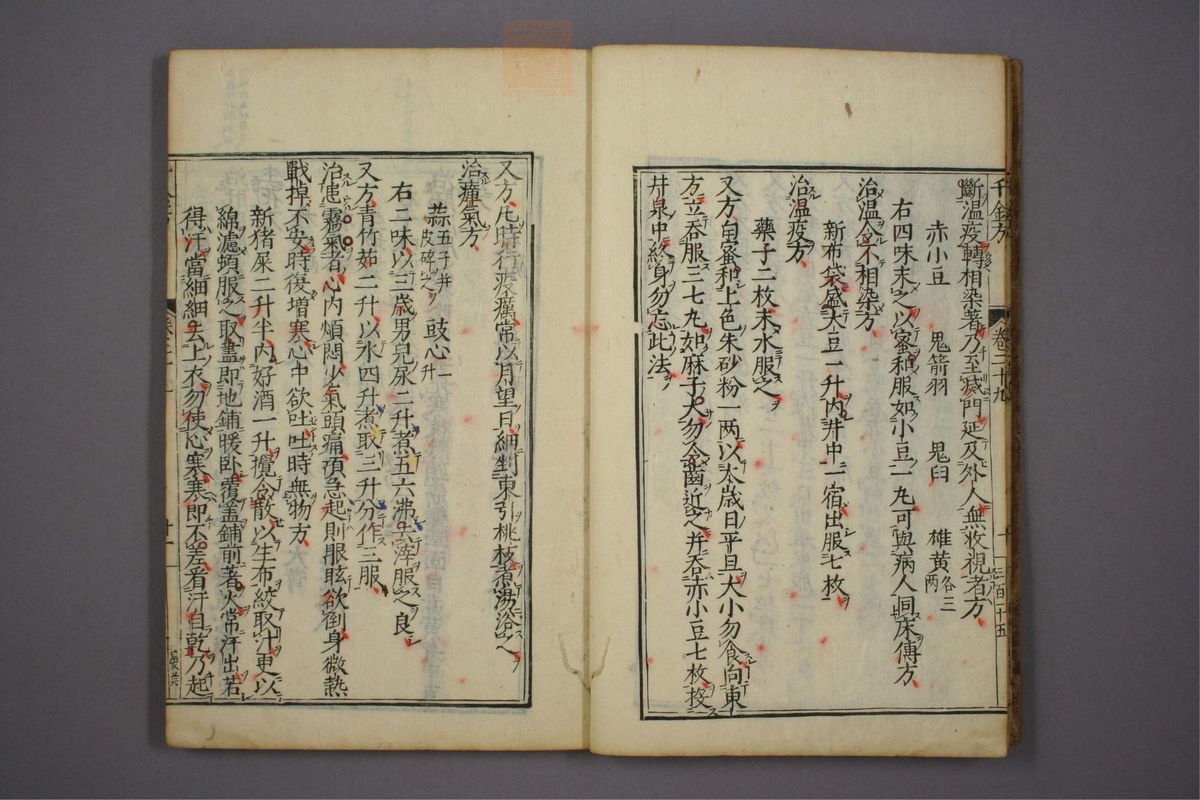 千金方 卷二十九
斷溫疫轉相染著乃至滅門延及外人無收視者方
赤小豆 鬼箭羽 鬼臼 雄黃各三兩
右四味末之以蜜和服如小豆一丸可與病人同床傅方
治溫令不相染方
新布袋盛大豆一升內井中一宿出服七枚
治溫疫方
藥子二枚末水服之
又方白蜜和上色朱砂粉一兩以太歲日平旦大小勿食向東
方立吞服三七丸如麻子大勿令齒近之并吞赤小豆七枚投
井泉中終身勿忘此法
又方凡時行疫癘常以月望日細剉東引桃枝煮湯浴之
治瘴氣方
蒜五子并皮碎之 豉心一升
右二味以三歲男兒尿二升煮五六沸去滓服之良
又方青竹茹二升以水四升煮取三升分作三服
治患霧氣者心內煩悶少氣頭痛項急起則眼眩欲倒身微熱
戰掉不安時復增寒心中欲吐吐時無物方
新猪屎二升半內好酒一升攪令散以生布絞取汁更以
綿濾頓服之取盡即地鋪暖卧覆蓋鋪前著火常汗出若
得汗當細細去上衣勿使心寒寒即不差看汗自乾乃起